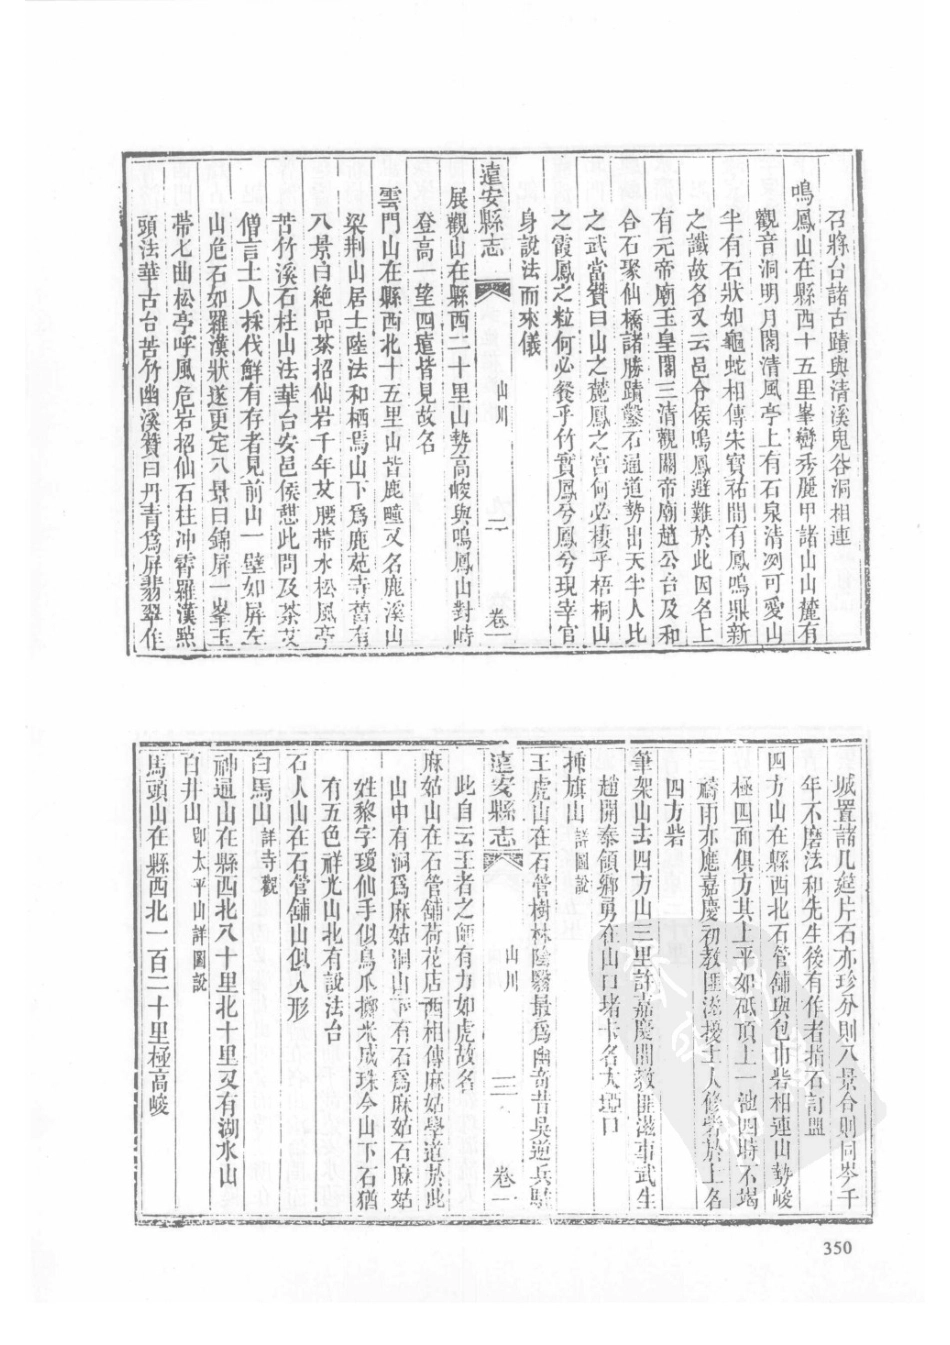 召將台諸古蹟與清溪鬼谷洞相連
鳴鳳山在縣西十五里峯巒秀麗甲諸山山麓有
觀音洞明月閣清風亭上有石泉清冽可愛山
半有石狀如龜蛇相傳宋寶祐間有鳳鳴鼎新
之讖故名又云邑令侯鳴鳳避難於此因名上
有元帝廟玉皇閣三清觀關帝廟趙公台及和
合石聚仙橋諸勝蹟鑿石通道勢出天半人比
之武當贊曰山之麓鳳之宮何必棲乎梧桐山
之霞鳳之粒何必餐乎竹實鳳兮鳳兮現宰官
身說法而來儀
遠安縣志 山川 二 卷一
展觀山在縣西二十里山勢高峻與鳴鳳山對峙
登高一望四壇皆見故名
雲門山在縣西北十五里山皆鹿疃又名鹿溪山
梁荆山居士陸法和栖焉山下爲鹿苑寺舊有
八景曰絶品茶招仙岩千年艾腰帶水松風亭
苦竹溪石柱山法華台安邑侯憇此問及茶艾
僧言土人採伐鮮有存者見前山一壁如屏左
山危石如羅漢狀遂更定八景曰錦屏一峯玉
帶七曲松亭呼風危岩招仙石柱冲霄羅漢點
頭法華古台苦竹幽溪贊曰丹青爲屏翡翠作
城置諸几筵片石亦珍分則八景合則同岑千
年不磨法和先生後有作者指石訂盟
四方山在縣西北石管舖與包巾砦相連山勢峻
極四面俱方其上平如砥頂上一池四時不竭
禱雨亦應嘉慶初教匪滋擾土人修砦於上名
四方砦
筆架山去四方山三里許嘉慶間教匪滋事武生
趙開泰領鄉勇在山口堵卡名大埡口
插旗山詳圖說
王虎山在石管樹林陰翳最爲幽奇昔吳逆兵駐
此自云王者之師有力如虎故名
遠安縣志 山川 三 卷一
麻姑山在石管舖荷花店西相傳麻姑學道於此
山中有洞爲麻姑洞山下有石爲麻姑石麻姑
姓黎字瓊仙手似鳥爪擲米成珠今山下石猶
有五色祥光山北有說法台
石人山在石管舖山似人形
白馬山詳寺觀
神通山在縣西北八十里北十里又有湖水山
百井山卽太平山詳圖說
馬頭山在縣西北一百二十里極高峻
350